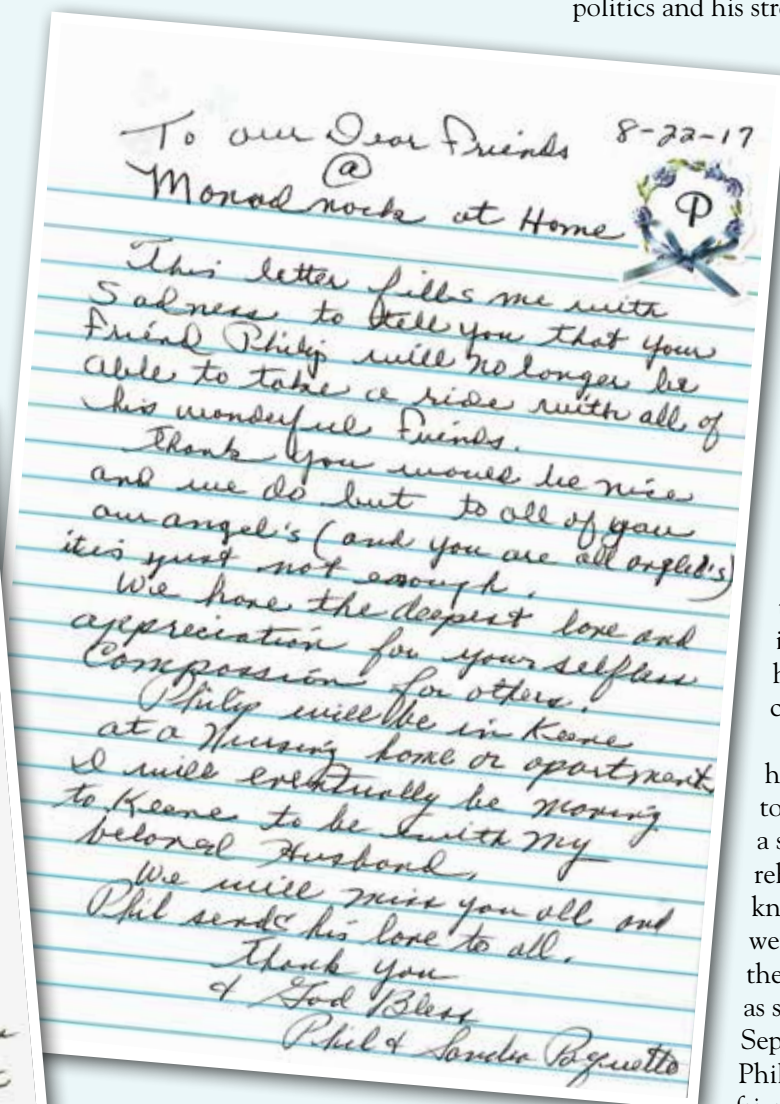 politics and his str
To our Dear Friends 8-22-17
@
Monadnock at Home
P
This letter fills me with
Sadness to tell you that your
friend Philip will no longer be
able to take a ride with all of
his wonderful friends.
Thank you would be nice
and we do but to all of you
our angel's (and you are all angles's)
it is just not enough.
We have the deepest love and
appreciation for your selfless
Compassion for others.
Philip will be in Keene
at a Nursing home or apartment
I will eventually be moving
to Keene to be with my
beloved Husband.
We will miss you all and
Phil sends his love to all.
Thank you
& God Bless
Phil & Sandra Paquette
i
h
c
h
to
a s
rel
kn
we
the
as s
Sep
Phil